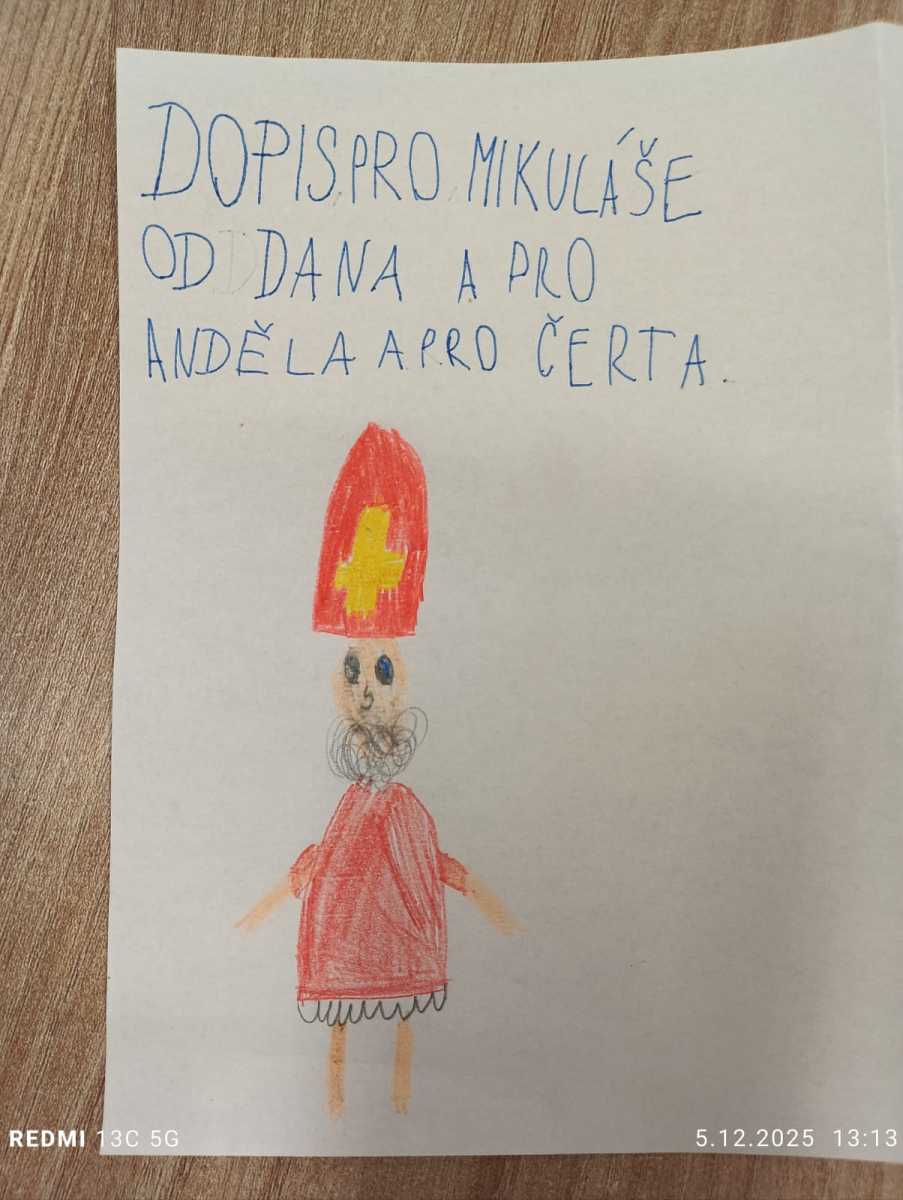 DOPIS PRO MIKULÁŠE
OD DANA A PRO
ANDĚLA A PRO ČERTA.
REDMI 13C 5G
5.12.2025 13:13